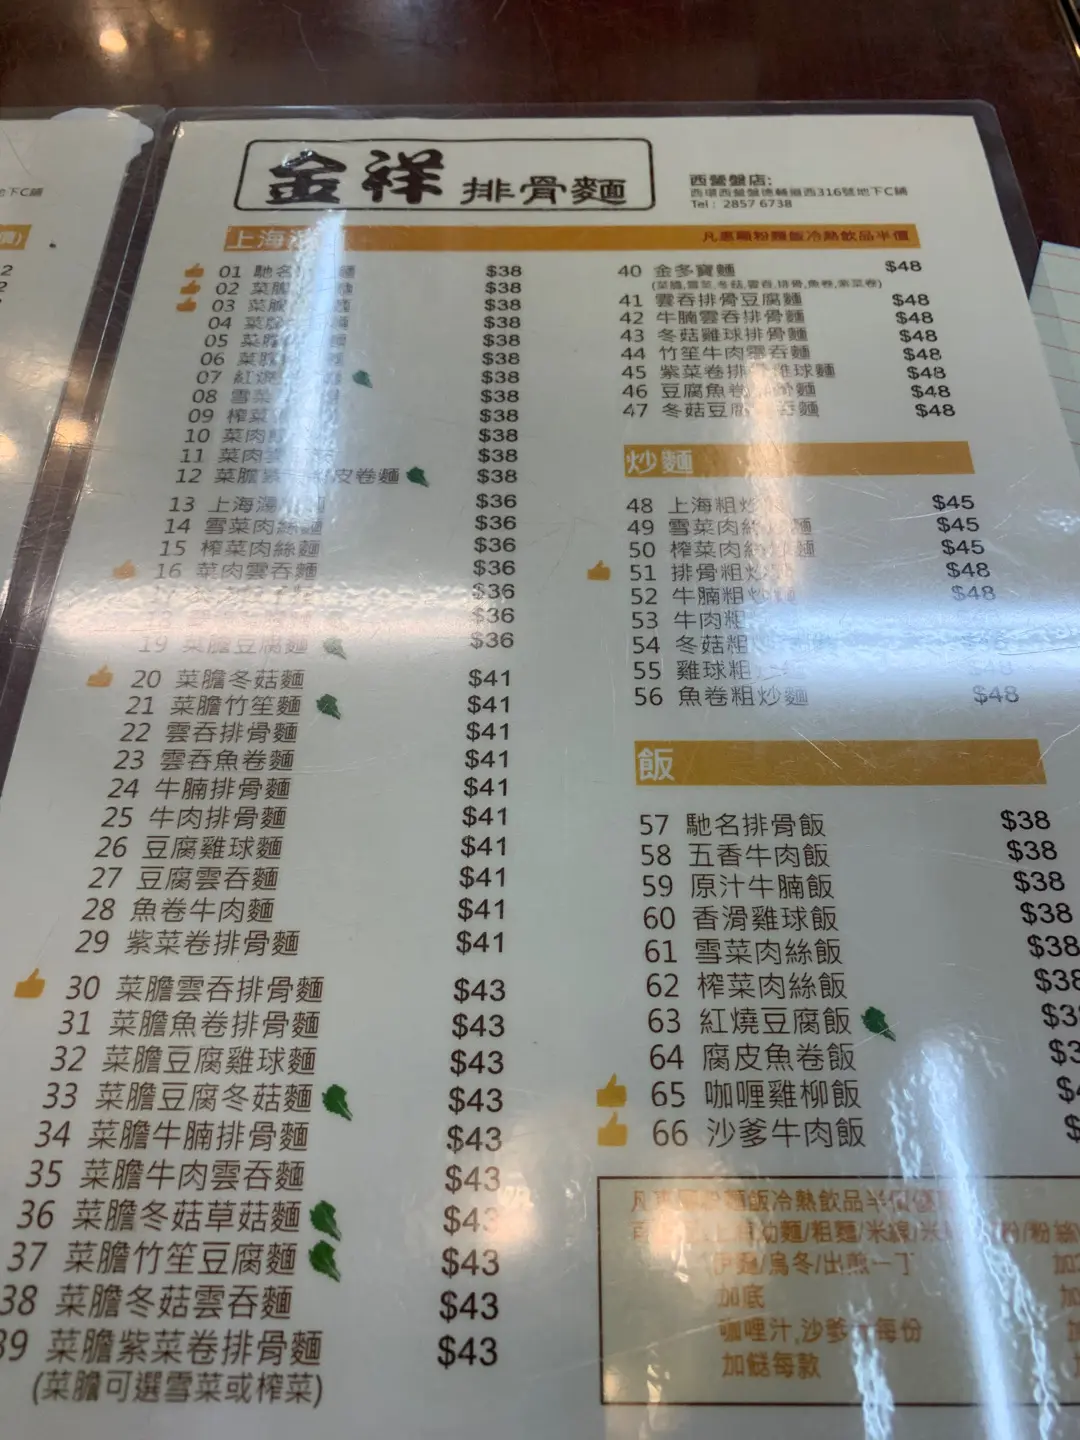 地下C鋪
金祥 排骨麵
西營盤店:
西環西營盤德輔道西316號地下C鋪
Tel : 2857 6738
上海湯
凡惠顧粉麵飯冷熱飲品半價
01 馳名 麵 $38
02 菜膽 $38
03 菜膽 $38
04 菜 $38
05 菜膽 $38
06 菜膽 $38
07 紅燒 $38
08 雪菜 $38
09 榨菜 $38
10 菜肉 $38
11 菜肉 $38
12 菜膽紫 皮卷麵 $38
13 上海湯 $36
14 雪菜肉絲麵 $36
15 榨菜肉絲麵 $36
16 菜肉雲吞麵 $36
$36
$36
19 菜膽豆腐麵 $36
20 菜膽冬菇麵 $41
21 菜膽竹笙麵 $41
22 雲吞排骨麵 $41
23 雲吞魚卷麵 $41
24 牛腩排骨麵 $41
25 牛肉排骨麵 $41
26 豆腐雞球麵 $41
27 豆腐雲吞麵 $41
28 魚卷牛肉麵 $41
29 紫菜卷排骨麵 $41
30 菜膽雲吞排骨麵 $43
31 菜膽魚卷排骨麵 $43
32 菜膽豆腐雞球麵 $43
33 菜膽豆腐冬菇麵 $43
34 菜膽牛腩排骨麵 $43
35 菜膽牛肉雲吞麵 $43
36 菜膽冬菇草菇麵 $43
37 菜膽竹笙豆腐麵 $43
38 菜膽冬菇雲吞麵 $43
39 菜膽紫菜卷排骨麵 $43
(菜膽可選雪菜或榨菜)
40 金多寶麵 $48
(菜膽,雪菜,冬菇,雲吞,排骨,魚卷,紫菜卷)
41 雲吞排骨豆腐麵 $48
42 牛腩雲吞排骨麵 $48
43 冬菇雞球排骨麵 $48
44 竹笙牛肉雲吞麵 $48
45 紫菜卷排骨雞球麵 $48
46 豆腐魚卷 骨麵 $48
47 冬菇豆腐 吞麵 $48
炒麵
48 上海粗炒 $45
49 雪菜肉絲 麵 $45
50 榨菜肉絲炒麵 $45
51 排骨粗炒 $48
52 牛腩粗炒麵 $48
53 牛肉粗
54 冬菇粗炒
55 雞球粗炒
56 魚卷粗炒麵 $48
飯
57 馳名排骨飯 $38
58 五香牛肉飯 $38
59 原汁牛腩飯 $38
60 香滑雞球飯 $38
61 雪菜肉絲飯 $38
62 榨菜肉絲飯 $38
63 紅燒豆腐飯 $3
64 腐皮魚卷飯 $3
65 咖喱雞柳飯 $4
66 沙爹牛肉飯 $
凡惠顧粉麵飯冷熱飲品半價優
幼麵/粗麵/米線/米 粉/粉絲
伊麵/烏冬/出前一丁 加
加底 加
咖喱汁,沙爹 每份 加
加餸每款